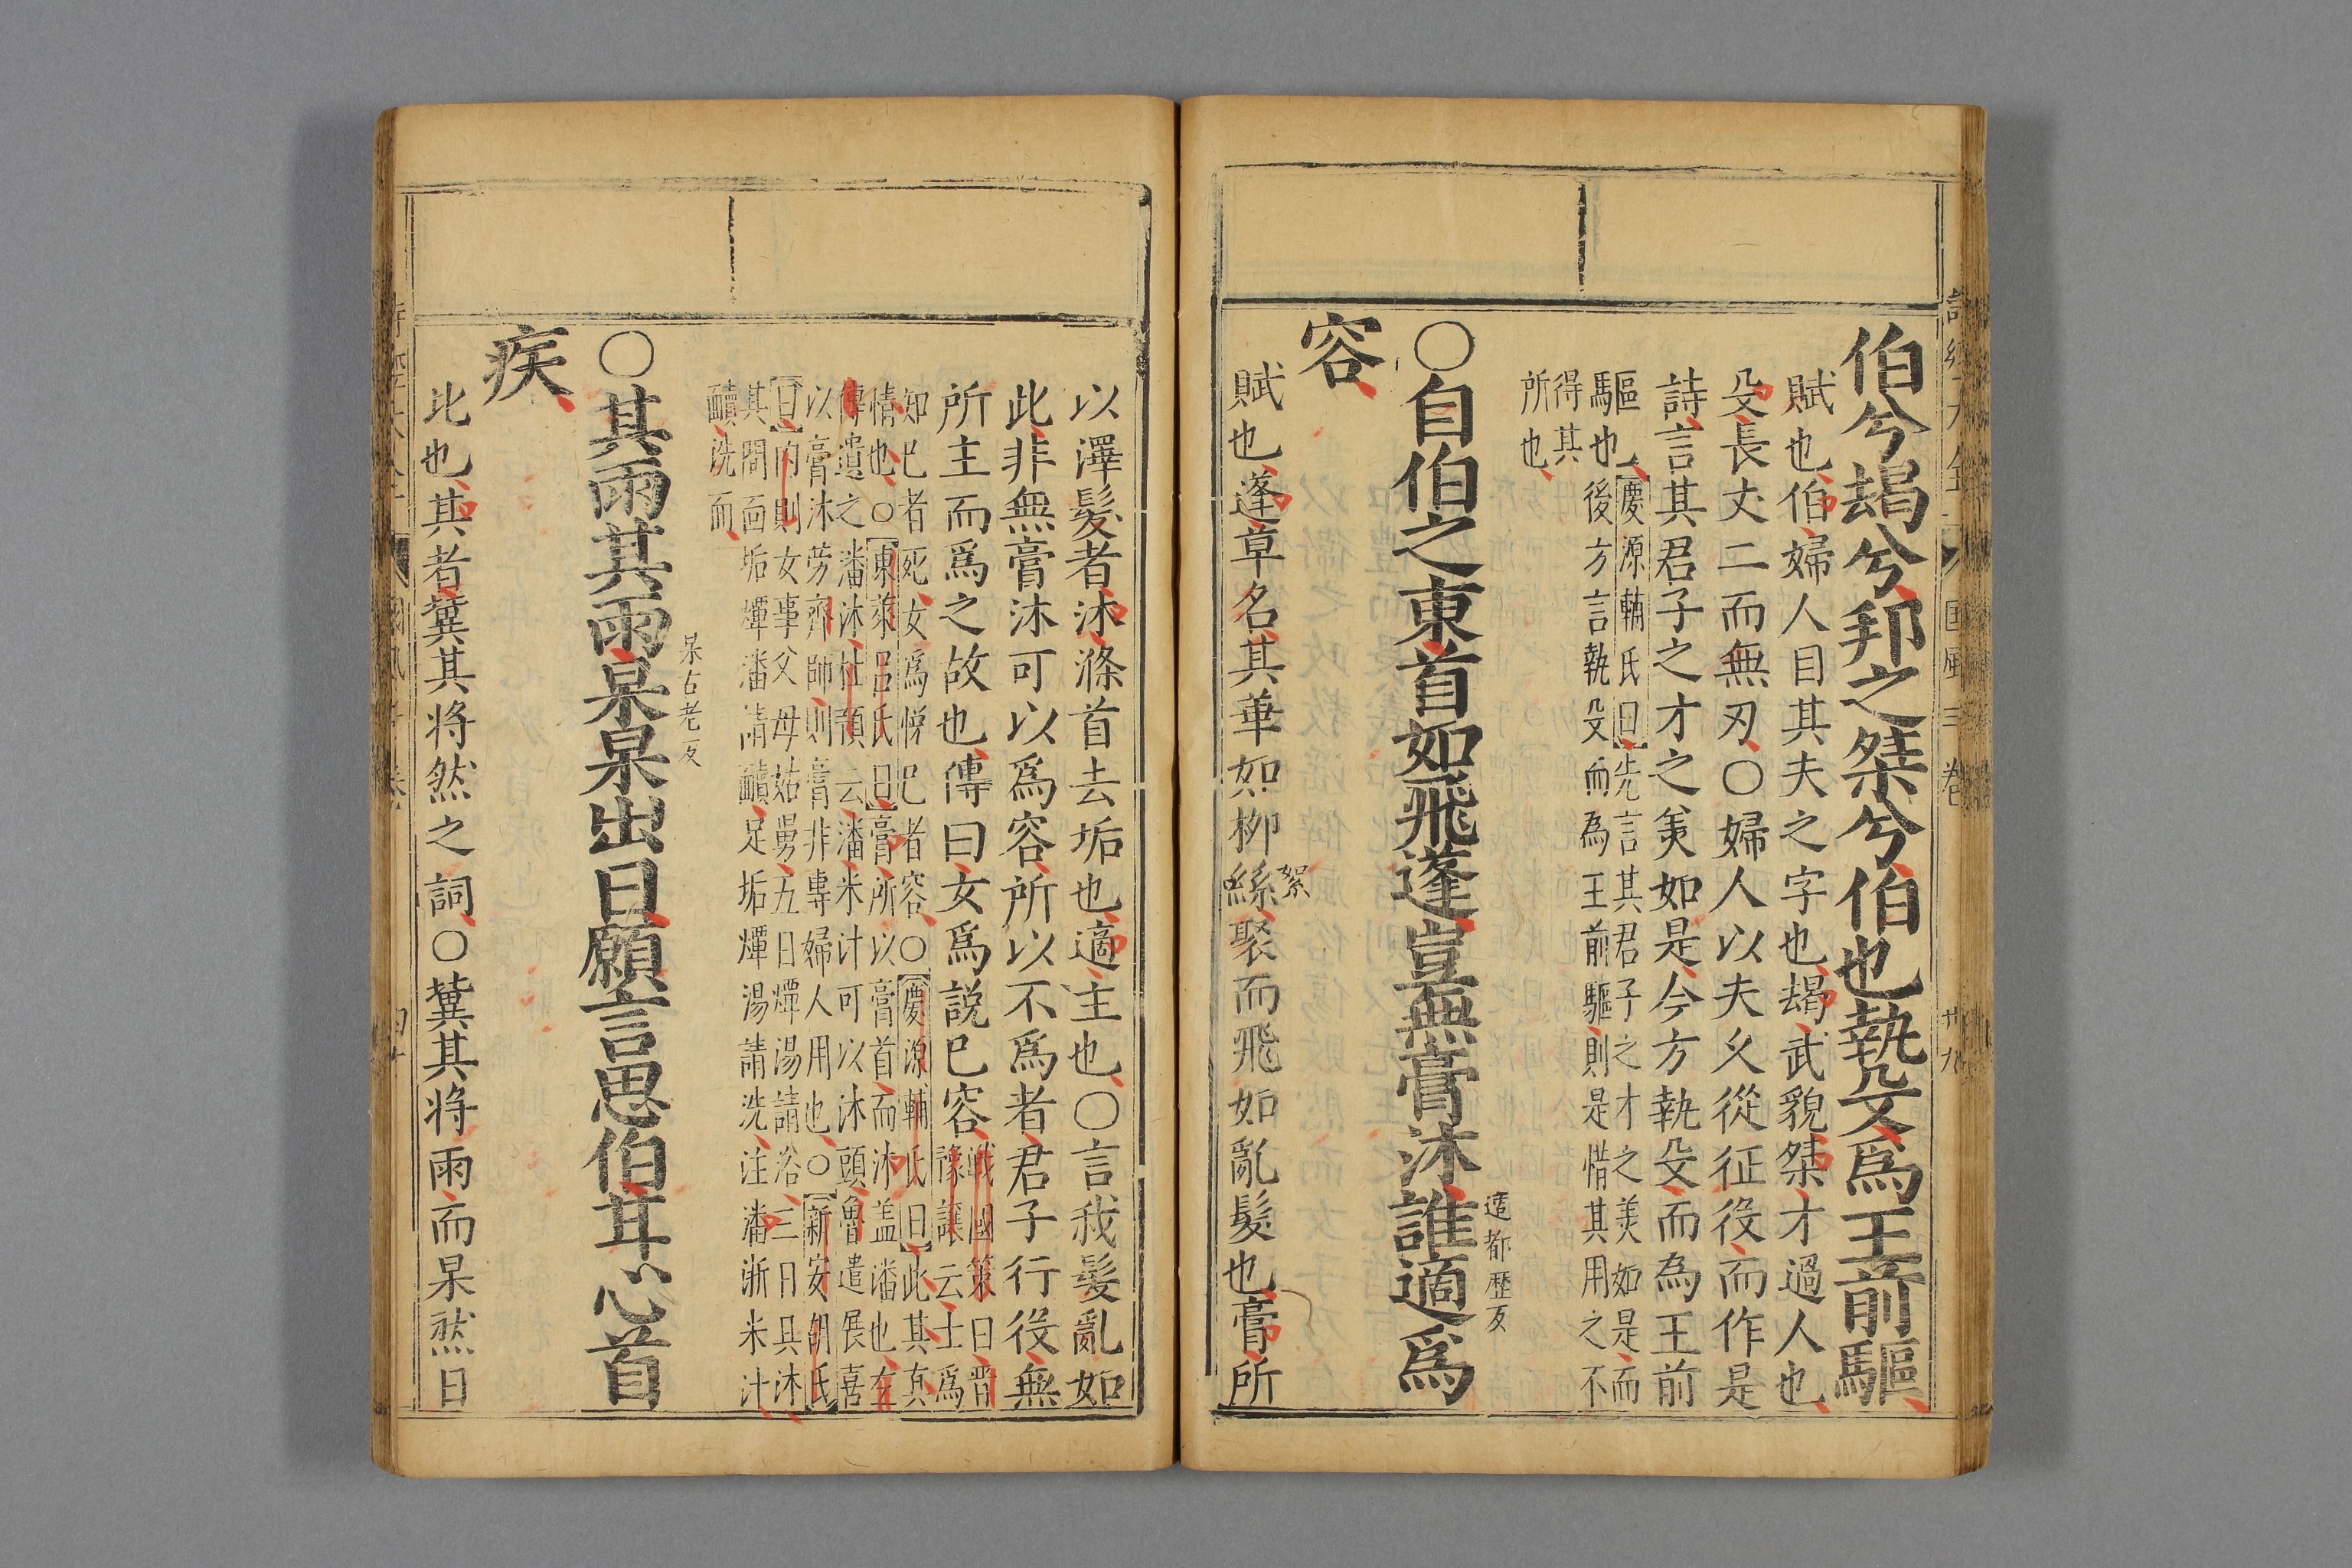 伯兮朅兮邦之桀兮伯也執殳爲王前驅
賦也伯婦人目其夫之字也朅武貌桀才過人也
殳長丈二而無刃○婦人以夫乆從征役而作是
詩言其君子之才之羙如是今方執殳而為王前
驅也慶源輔氏曰先言其君子之才之美如是而
後方言執殳而為王前驅則是惜其用之不
得其
所也
適都歷反
○自伯之東首如飛蓬豈無膏沐誰適爲
容
賦也蓬草名其華如柳絲聚而飛如亂髮也膏所
絮
以澤髮者沐滌首去垢也適主也○言我髮亂如
此非無膏沐可以爲容所以不爲者君子行役無
所主而爲之故也傳曰女爲説已容
戰國策曰晋
豫讓云士爲
知已者死女爲悦已者容○慶源輔氏曰此其真
情也○東萊吕氏曰膏所以膏首而沐盖潘也左
傳遺之潘沐杜預云潘米汁可以沐頭魯遣展喜
以膏沐劳齊師則膏非專婦人用也○新安胡氏
曰内則女事父母姑舅五日燂湯請浴三日具沐
其間面垢燂潘請靧足垢燂湯請洗注潘淅米汁
靧洗而
杲古老反
○其雨其雨杲杲出日願言思伯甘心首
疾
比也其者冀其將然之詞○冀其將雨而杲然日